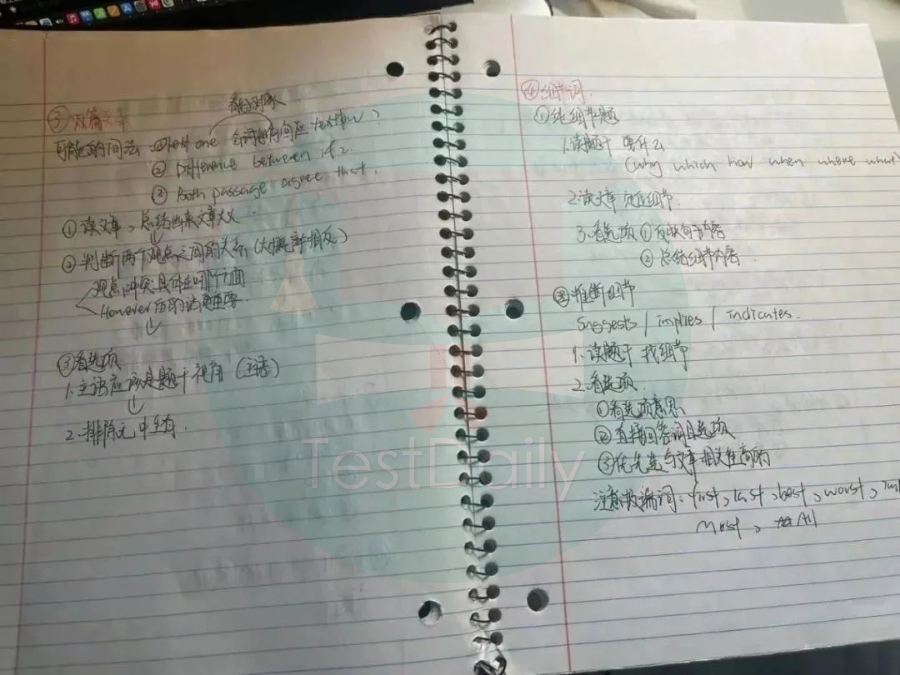 ③ 双篇文章
看对象
可能的问法 ① Text one 会同意如何回应 text two
② Difference between 1 & 2.
③ Both passage agree that.
① 读文章，总结出来文章大义
② 判断两个观点之间的关系（大概率相反）
观点冲突具体在哪个面
However 后的话更重要
③ 看选项
1. 主语应该是题干视角（主语）
2. 排除无中生有.
④ 细节词.
① 纯细节题
1. 读题干 要什么
(why which how when where what)
2. 读文章 定位细节.
3. 看选项 ①
② 总结细节内容.
② 推断细节
Suggests / implies / indicates.
1. 读题干 找细节
2. 看选项.
① 看选项意思
②
③ 优先选与文章相关性高的
注意 first, last, best, worst,
Most, All
TestDaily